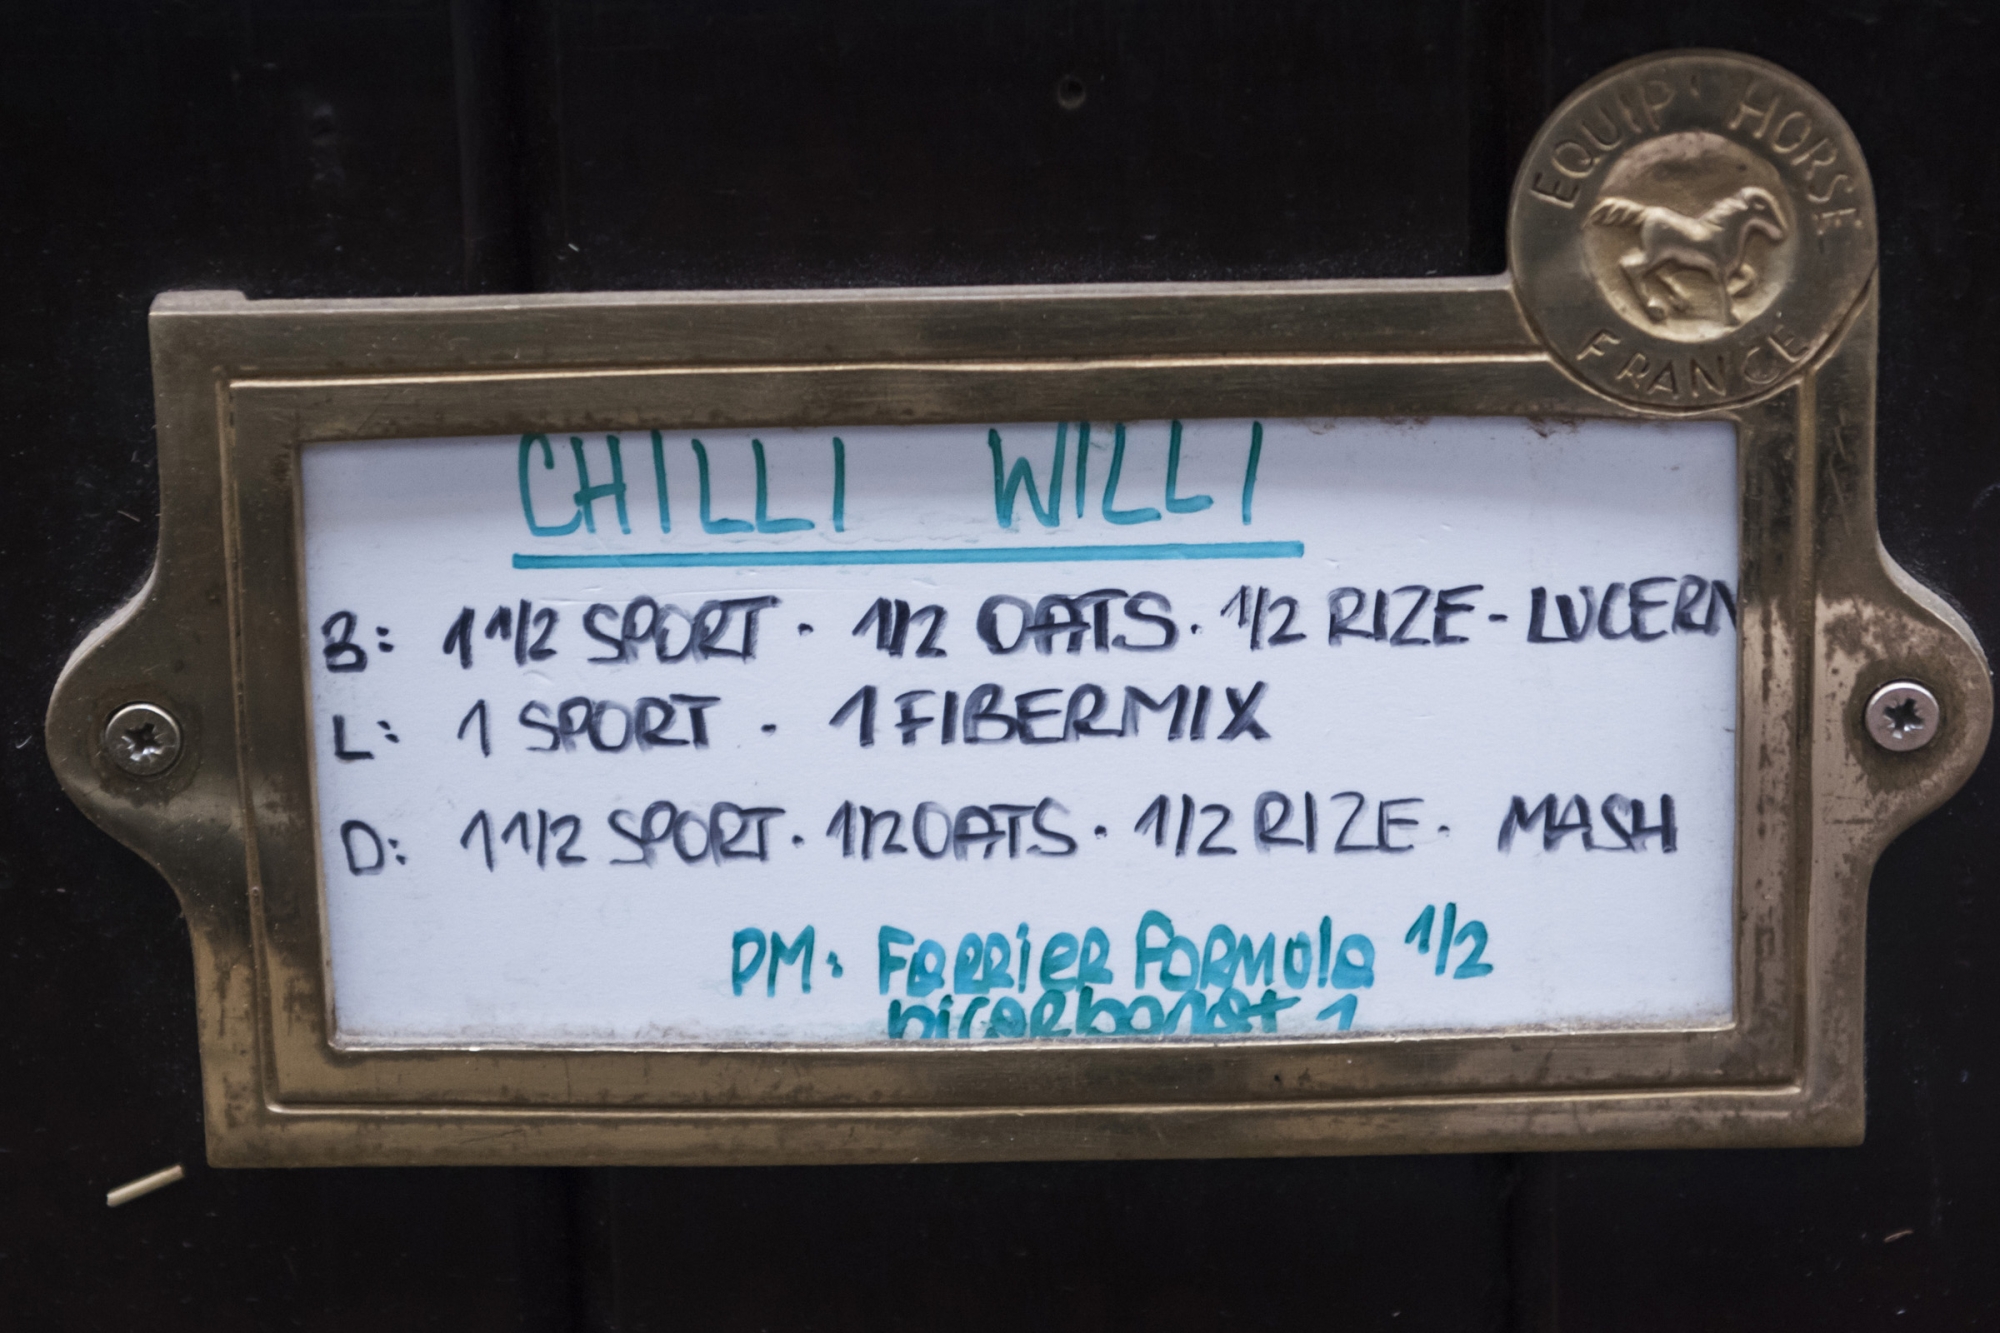 EQUIP' HORSE
FRANCE
CHILLI WILLI
B: 1 1/2 SPORT · 1/2 OATS · 1/2 RIZE - LUCERN
L: 1 SPORT · 1 FIBERMIX
D: 1 1/2 SPORT · 1/2 OATS · 1/2 RIZE · MASH
PM: FARRIER FORMULA 1/2
bicarbonat 1